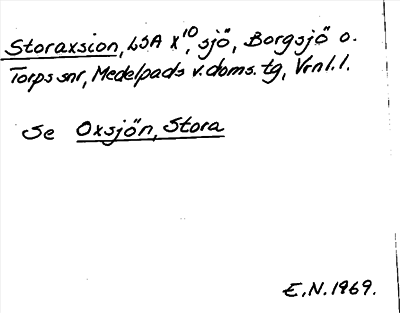 Storaxsion, LSA X¹⁰, sjö, Borgsjö o.
Torps snr, Medelpads v. doms. tg, Vrnl. l.
Se Oxsjön, Stora
E.N. 1969.